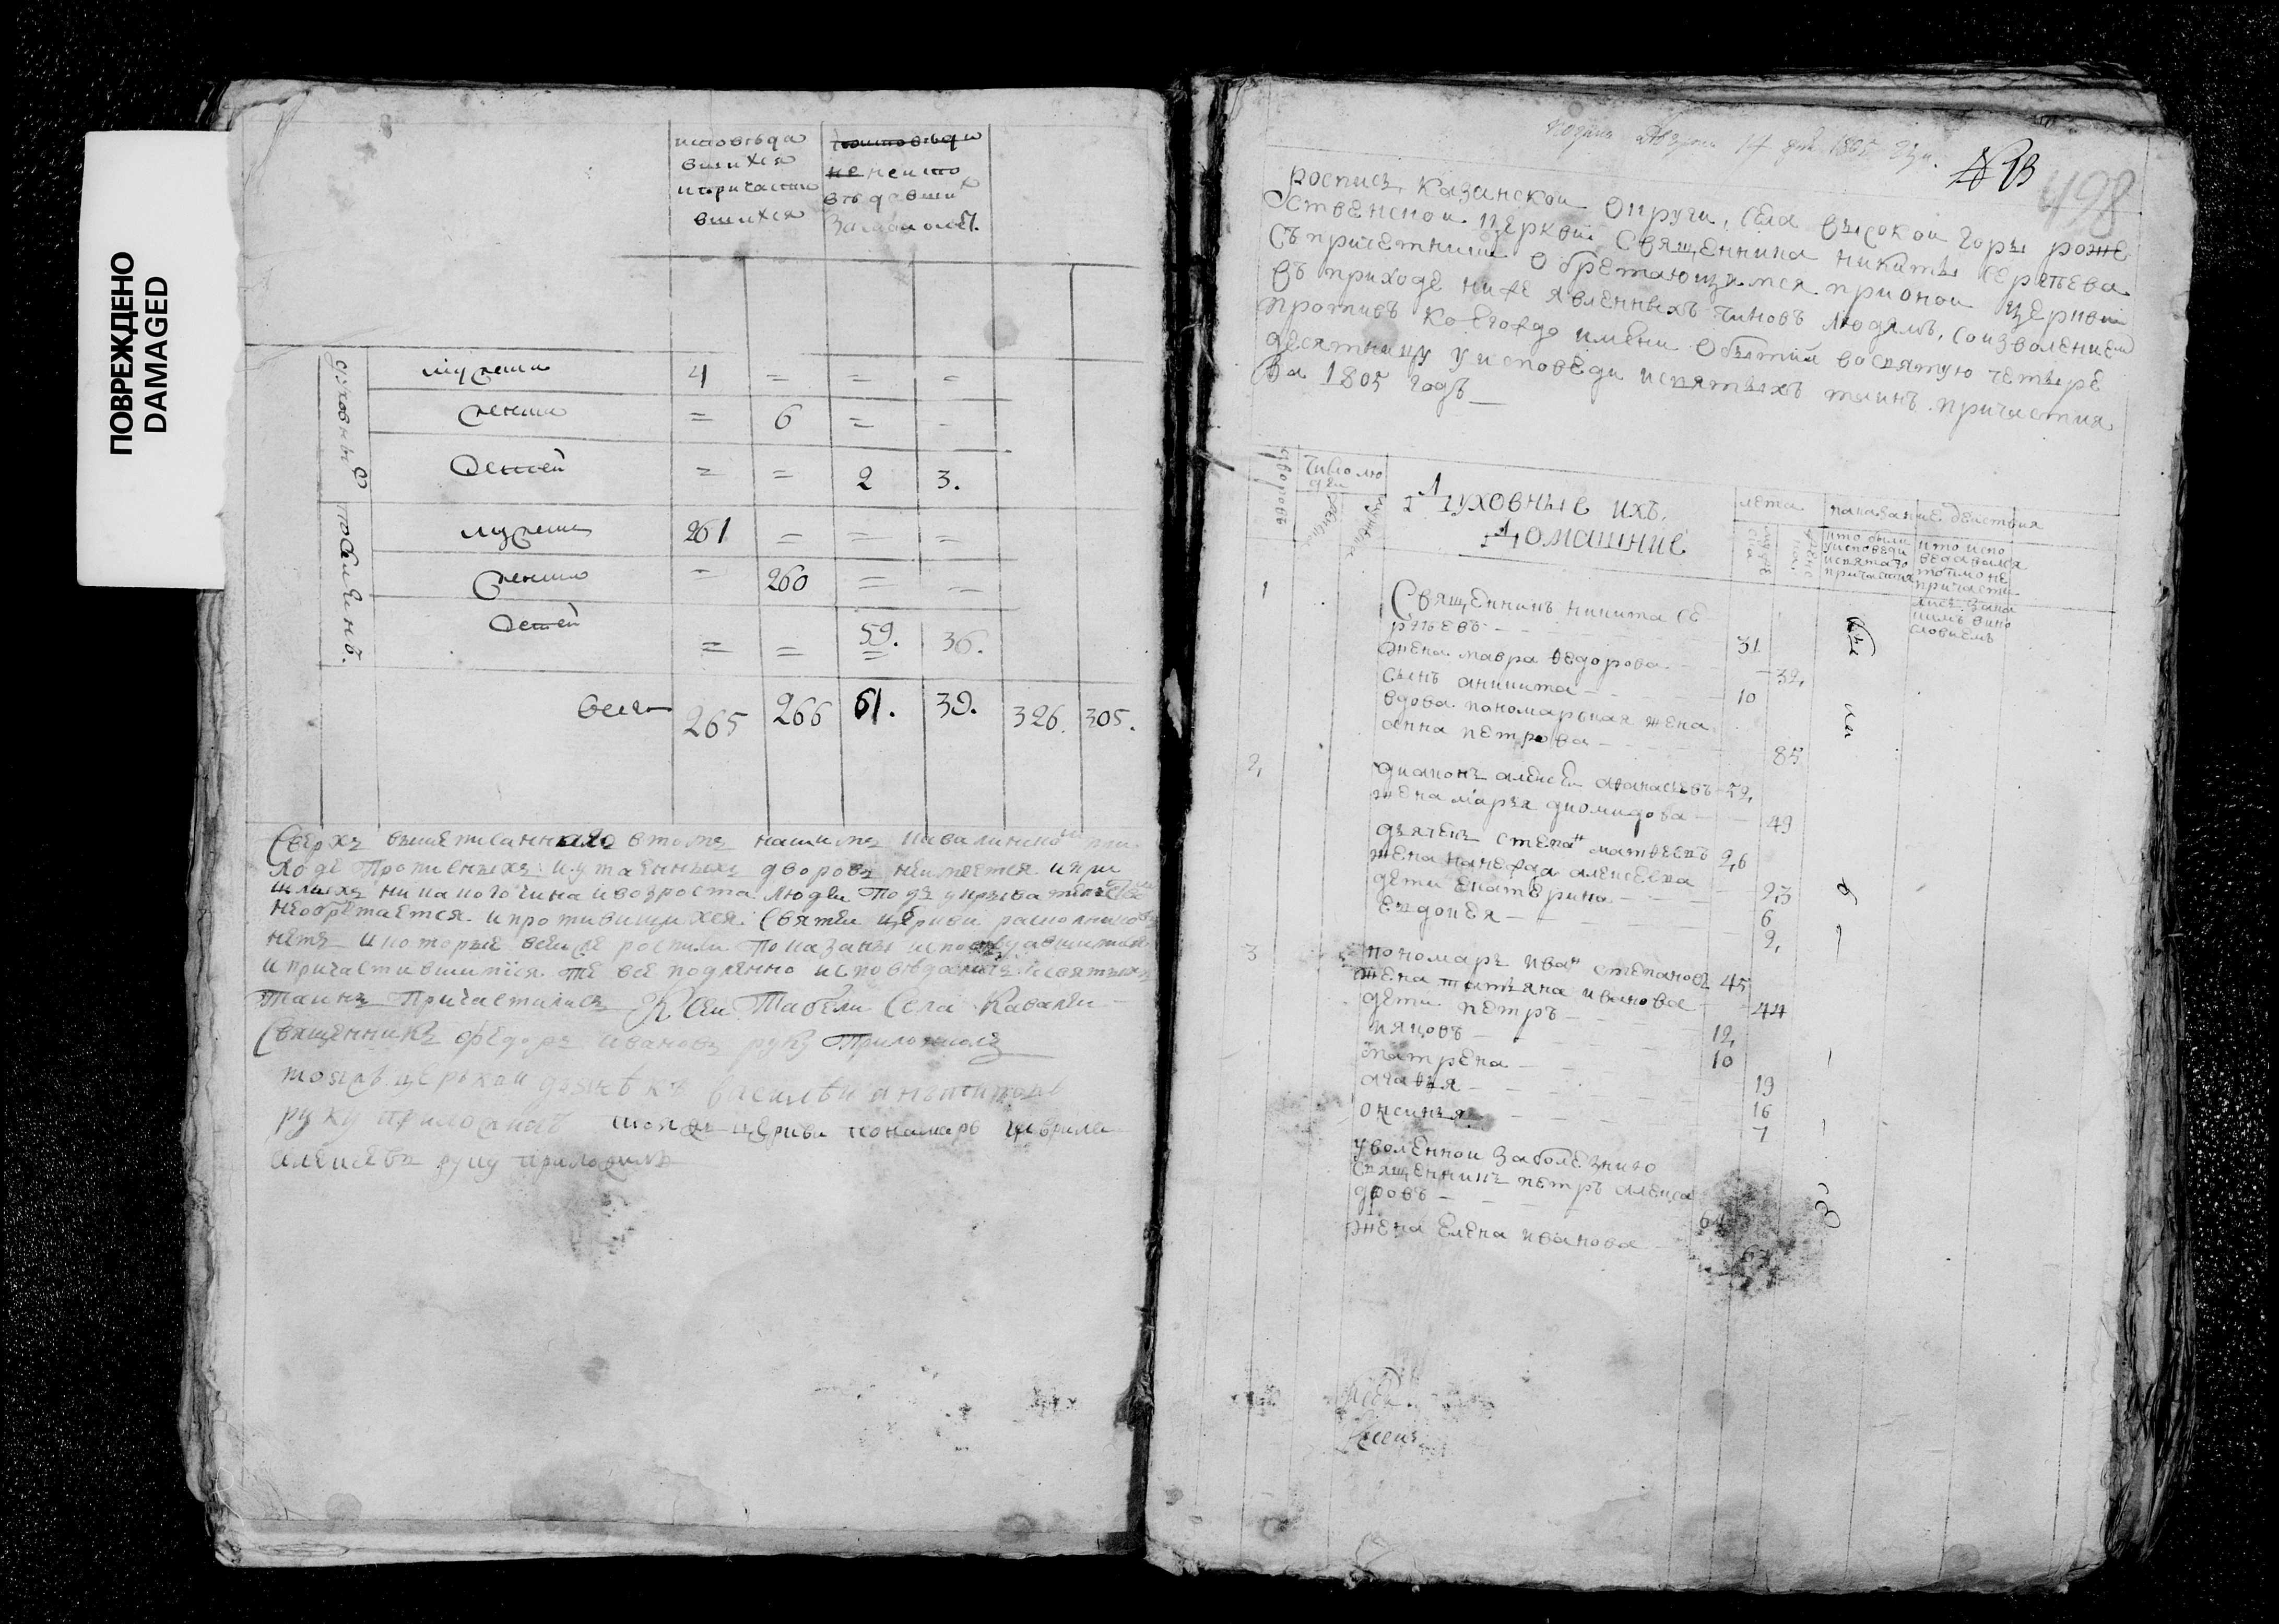 ПОВРЕЖДЕНО
DAMAGED
исповѣда
вшихся
и причасти
вшихся
не испо
вѣдавших
За малолѣт.
духовныя
мужеска 4 = = =
женска = 6 = =
Детей = = 2 3.
мужеска 261 = = =
женска = 260 = =
Детей = = 59. 36.
всего 265 266 61. 39. 326. 305.
Сверхъ вышеписаннаго в томъ нашемъ
ходе прописныхъ и утаенныхъ дворовъ неимеется и при
шлыхъ ни какого чина и возроста людеи
необретается и противящихся святеи церкви
нетъ и которые в сеи росписи показаны
и причастившимися те все подлинно исповѣдались и святыхъ
Таинъ Причастились К сеи Табели Села Кавалеи
Священникъ Федоръ Ивановъ руку Приложилъ
тояжъ церькви дьячекъ василеи
руку приложилъ тояжъ церкви понамарь гаврила
алексеевъ руку приложилъ
1805
№ 13
498
роспись Казанскои округи, села высокои горы роже
ственскои церкви Священника никиты сергѣева
съ причетники обретающимся при онои церкви
въ приходе ниже явленныхъ чиновъ людямъ, соизволениемъ
противъ коегождо имени о бытии во святую четыре
десятницу у исповеди и святыхъ таинъ причастия
За 1805 годъ
число лю
деи
Духовные ихъ
Домашние
лета
показание действия
кто были
у исповеди
и святаго
причастия
кто испо
ведовался
токмо не
причасти
1 Священникъ никита се
ргѣевъ 31
жена мавра ѳедорова 32,
сынъ аникита 10
вдова пономарская жена
анна петрова 85
2, диаконъ алексеи аѳанасьевъ 52,
жена марья диомидова 49
дьячекъ степанъ матвеевъ 26
жена алексеева 23
дети екатерина 6
евдокея 2,
3 пономарь иванъ степановъ 45
жена татьяна иванова 44
дети петръ 12,
яковъ 10
матрена 19
агаѳья 16
оксинья 7
уволеннои за болезнию
священникъ петръ алекса
дровъ
жена елена иванова